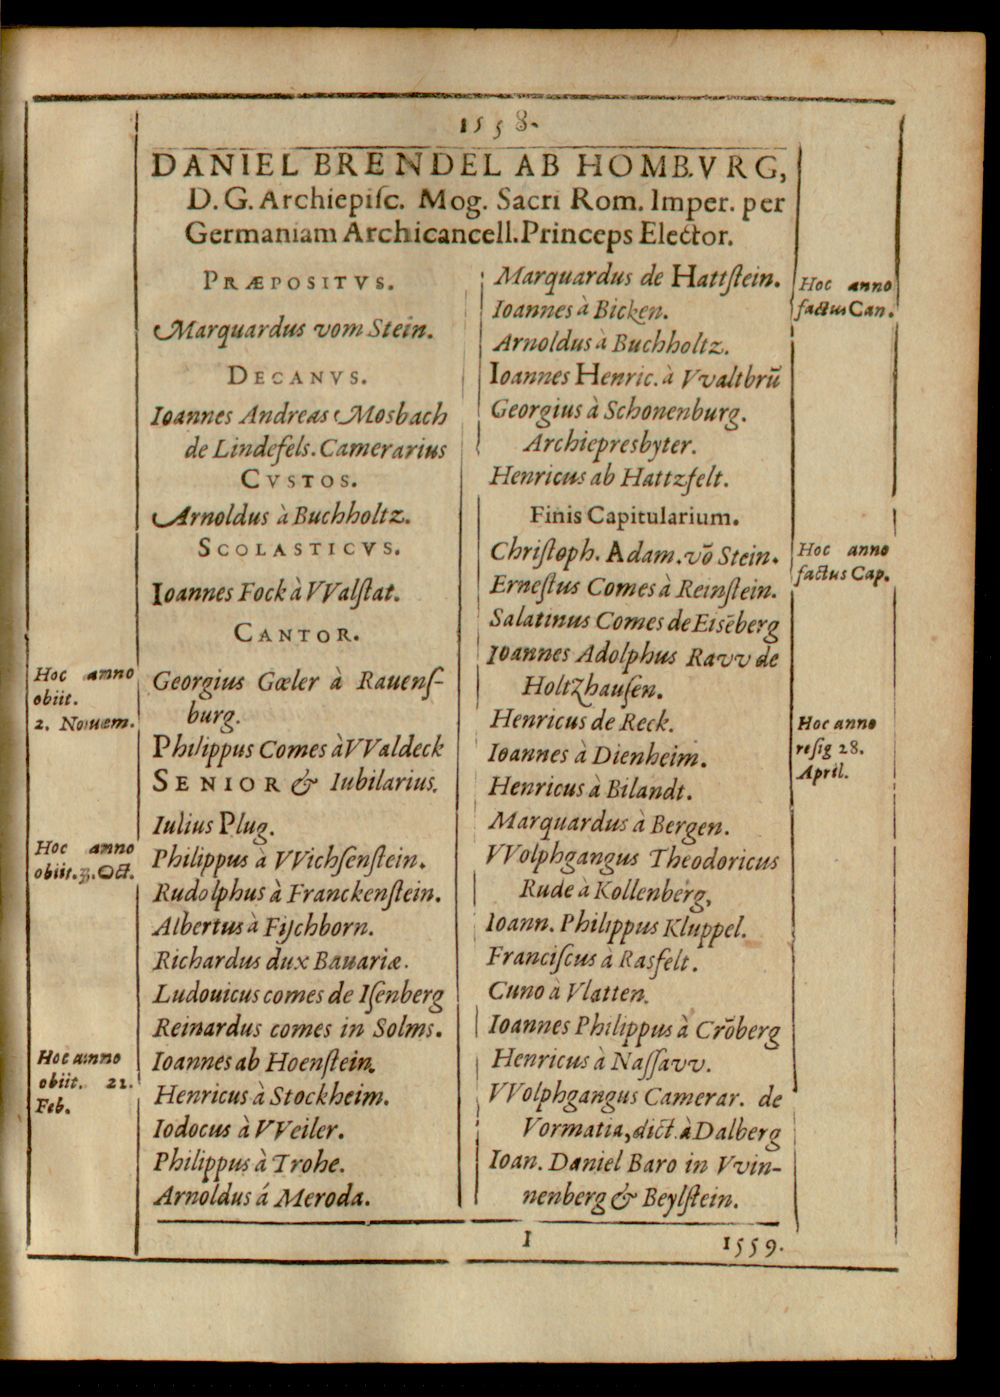 1558.
DANIEL BRENDEL AB HOMB.VRG,
D. G. Archiepiſc. Mog. Sacri Rom. Imper. per
Germaniam Archicancell. Princeps Elector.
PRÆPOSITVS.
Marquardus vom Stein.
DECANVS.
Ioannes Andreas Mosbach
de Lindefels. Camerarius
CVSTOS.
Arnoldus à Buchholtz.
SCOLASTICVS.
Ioannes Fock à VValſtat.
CANTOR.
Hoc anno
obiit.
2. Nouem.
Georgius Gœler à Rauenſ-
burg.
Philippus Comes à VValdeck
SENIOR & Iubilarius.
Iulius Plug.
Hoc anno
obiit. 3. Oct.
Philippus à VVichſenſtein.
Rudolphus à Franckenſtein.
Albertus à Fiſchborn.
Richardus dux Bauariæ.
Ludouicus comes de Iſenberg
Reinardus comes in Solms.
Hoc anno
obiit. 21.
Feb.
Ioannes ab Hoenſtein.
Henricus à Stockheim.
Iodocus à VVeiler.
Philippus à Trohe.
Arnoldus á Meroda.
Marquardus de Hattſtein.
Hoc anno
factus Can.
Ioannes à Bicken.
Arnoldus à Buchholtz.
Ioannes Henric. à Vvaltbrū
Georgius à Schonenburg.
Archiepresbyter.
Henricus ab Hattzfelt.
Finis Capitularium.
Chriſtoph. Adam. vō Stein.
Hoc anno
factus Cap.
Erneſtus Comes à Reinſtein.
Salatinus Comes de Eisēberg
Ioannes Adolphus Ravv de
Holtzhauſen.
Henricus de Reck.
Hoc anno
reſig 28.
April.
Ioannes à Dienheim.
Henricus à Bilandt.
Marquardus à Bergen.
VVolphgangus Theodoricus
Rude à Kollenberg,
Ioann. Philippus Kluppel.
Franciſcus à Rasfelt.
Cuno à Vlatten.
Ioannes Philippus à Crōberg
Henricus à Naſſavv.
VVolphgangus Camerar. de
Vormatia, dict. à Dalberg
Ioan. Daniel Baro in Vvin-
nenberg & Beylſtein.
I
1559.